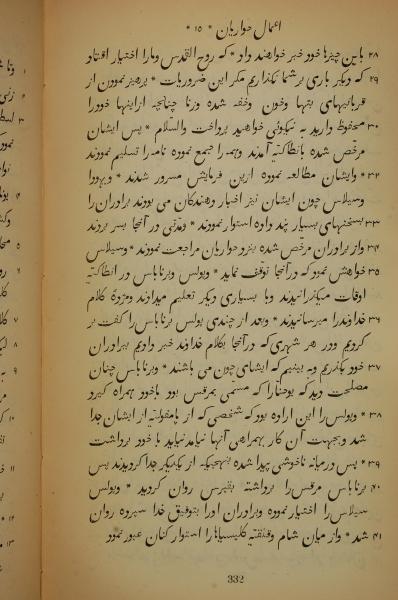 اعمال حواریان * ۱۵ *
۲۸ باین چیزها خود خبر خواهند داد * که روح القدس و مارا اختیار افتاد
۲۹ که دیکر باری بر شما نکذاریم مکر این ضروریات * پرهیز نمودن از
قربانیهای بتها وخون وخفه شده وزنا چنانچه ازاینها خودرا
۳۰ محفوظ دارید به نیکوئی خواهید پرداخت والسلام * پس ایشان
مرخص شده بانطاکیه آمدند وهمه را جمع نموده نامه را تسلیم نمودند
۳۲ * وایشان مطالعه نموده ازین فرمایش مسرور شدند * ویهودا
وسیلاس چون ایشان نیز اخبار دهندکان می بودند برادران را
۳۳ بسخنهای بسیار پند داده استوار نمودند * ومدتی در آنجا بسر بردند
۳۴ واز برادران مرخص شده بنزد حواریان مراجعت نمودند * وسیلاس
۳۵ خواهش نمود که در آنجا توقف نماید * وپولس وبرناباس در انطاکیه
اوقات میکذرانیدند وبا بسیاری دیکر تعلیم میدادند ومژده کلام
۳۶ خداوندرا میرسانیدند * وبعد از چندی پولس برناباس را کفت بر
کردیم ودر هر شهری که در آنجا بکلام خداوند خبر دادیم ببرادران
۳۷ خود بکذریم وبه بینیم که ایشان چون می باشند * وبرناباس چنان
مصلحت دید که یوحنارا که مسمی بمرقس بود باخود همراه کیرد
۳۸ * وپولس را این اراده بود که شخصی که از پامفولیه از ایشان جدا
شد وبجهت آن کار بهمراهی آنها نیامد نباید با خود برداشت
۳۹ * پس درمیانه ناخوشی پیدا شده بنهجیکه از یکدیکر جدا کردیدند پس
۴۰ برناباس مرقس را برداشته بقپرس روان کردید * وپولس
سیلاس را اختیار نموده وبرادران اورا بتوفیق خدا سپرده روان
۴۱ شد * واز میان شام وقلقیه کلیسیاها را استوار کنان عبور نمود
332